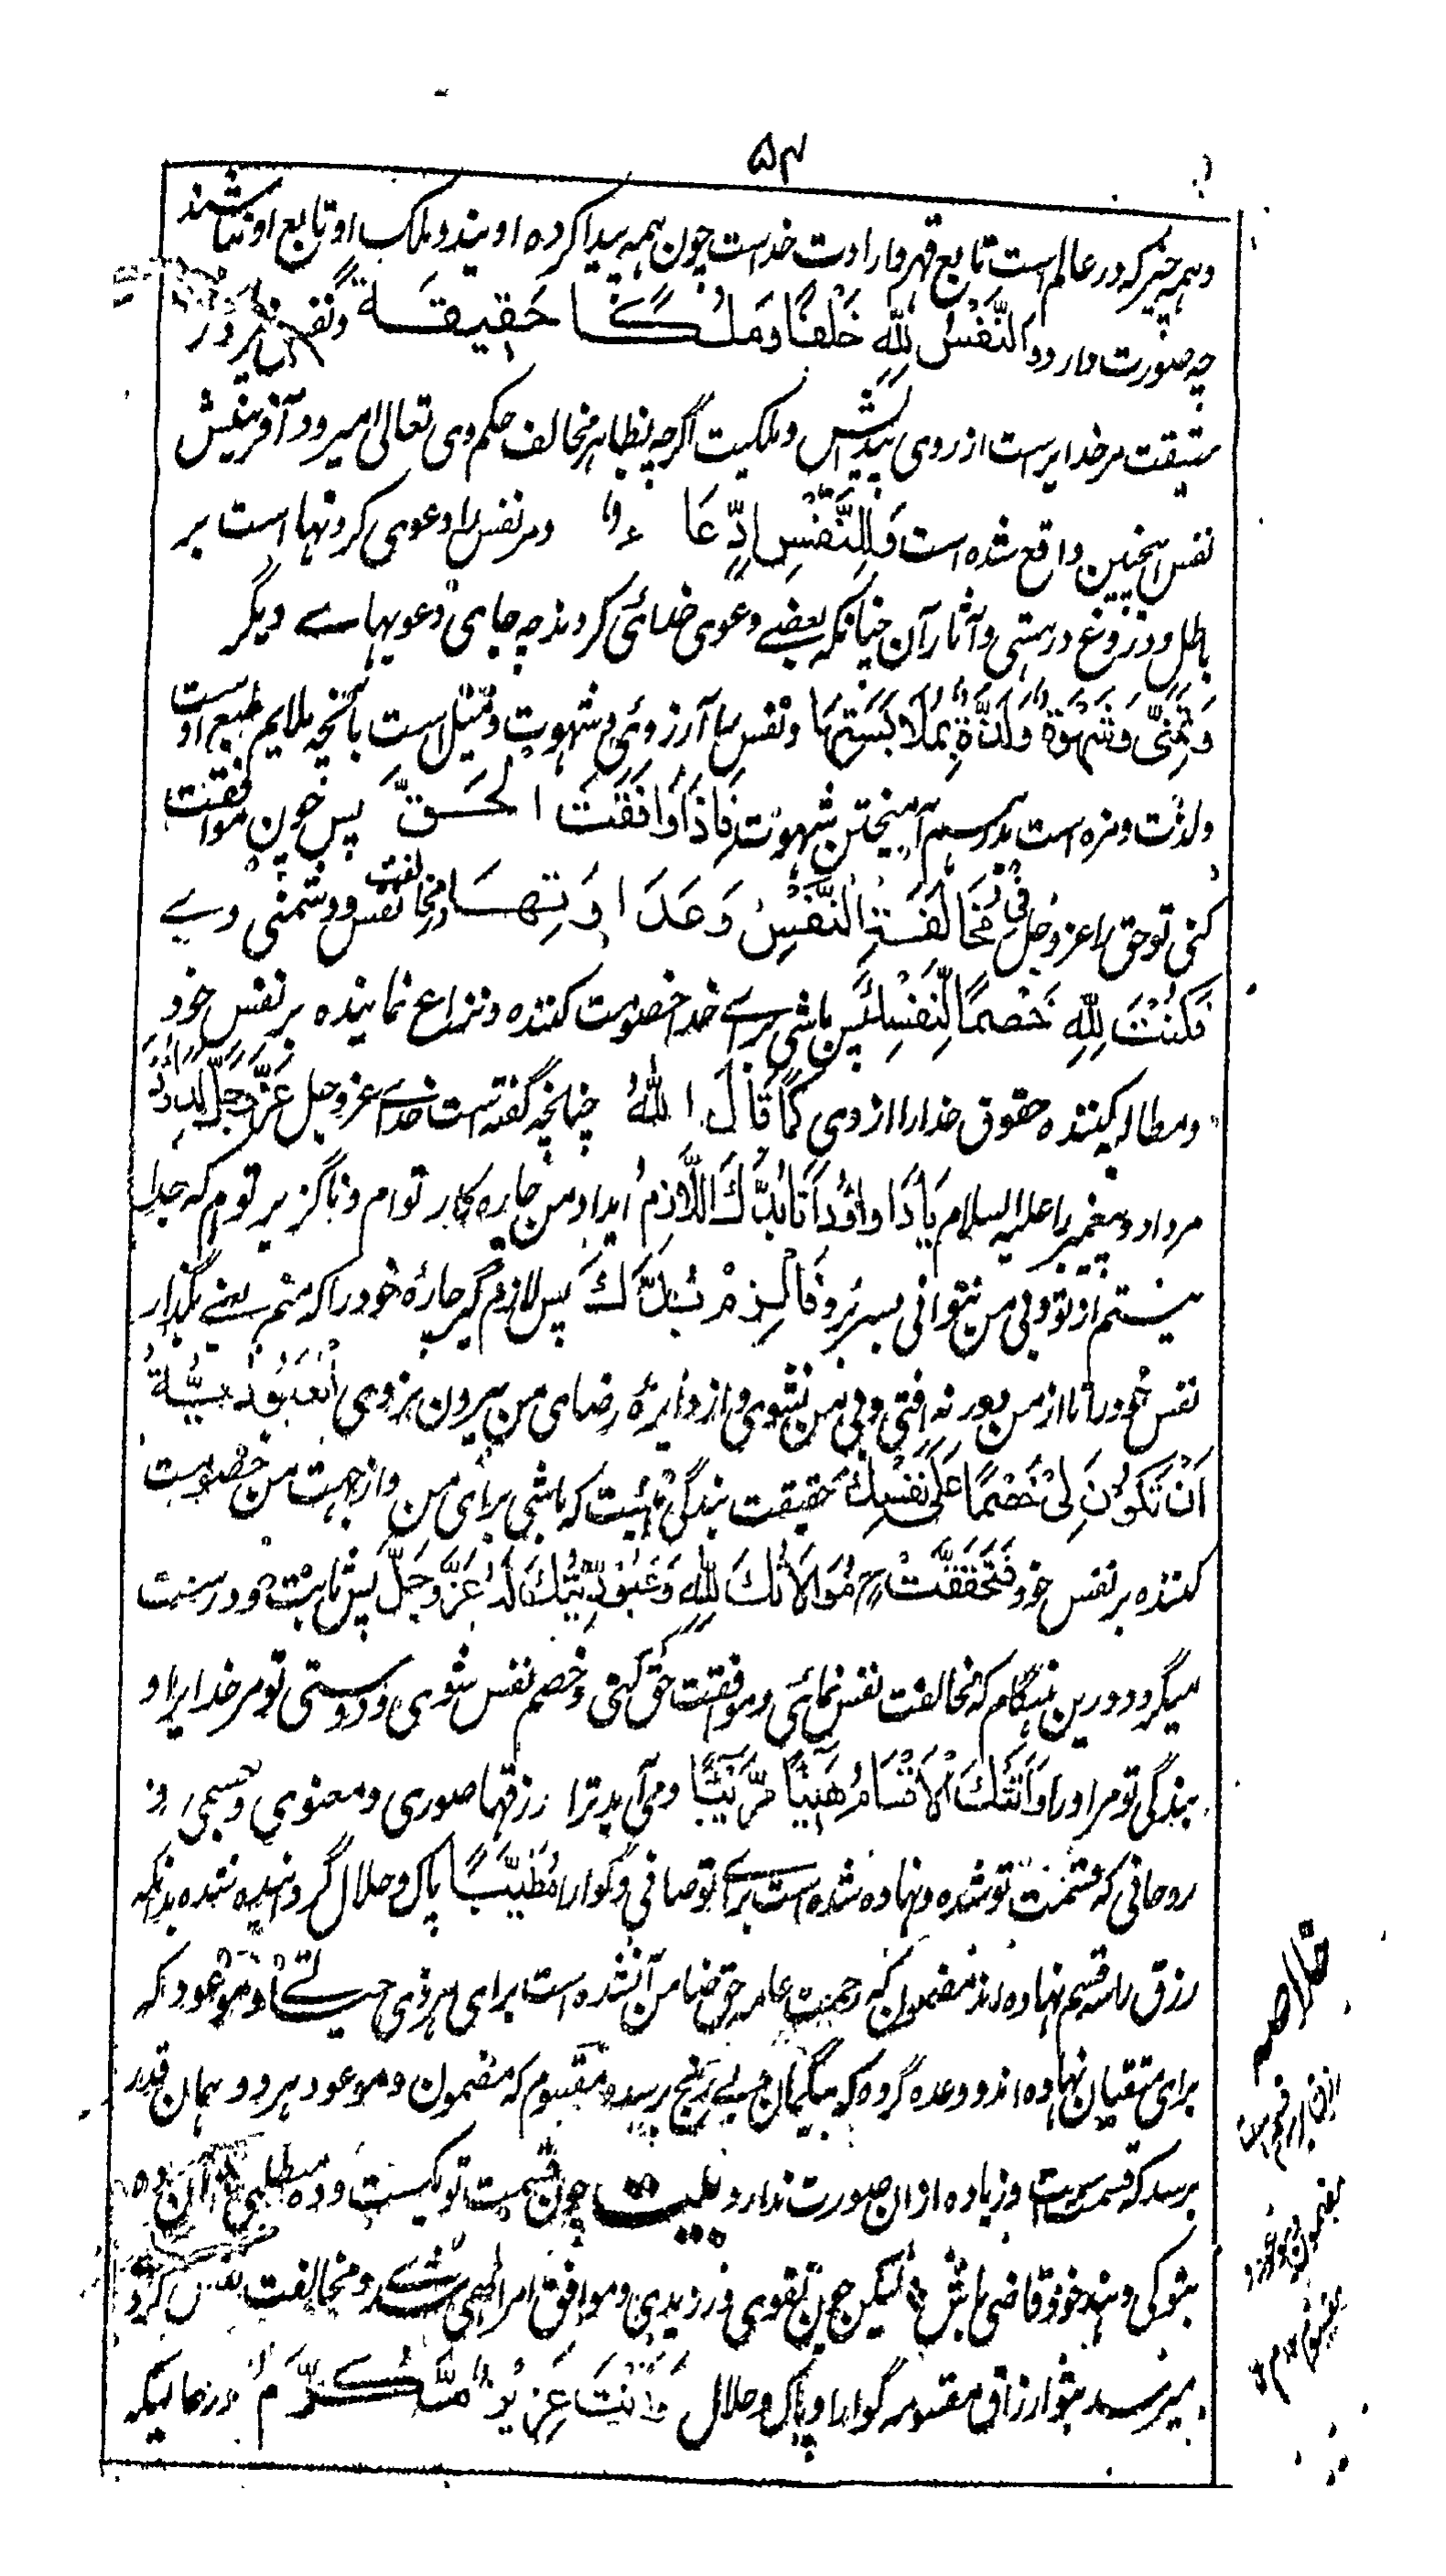 ۵۴
وهمه چیز که در عالم است تابع قهر و ارادت خداست چون همه پیدا کرده اویند و ملک او تابع او باشند
چه صورت دارد و النَّفْسُ لِلّٰهِ خَلْقًا وَمُلْكًا حَقِيقَةً ونفس نیز در
حقیقت مر خدایراست از روی پیدایش و ملکیت اگرچه بظاهر مخالف حکم وی تعالی میرود و آفرینش
نفس همچنین واقع شده است وَلِلنَّفْسِ اِدِّعَاءٌ ومر نفس را دعوی کردنها است بر
باطل و دروغ در هستی و آثار آن چنانکه بعضے دعوی خدائی کردند چه جای دعویهاے دیگر
وَتَمَنِّی وَشَهْوَةٌ وَلَذَّةٌ بِمُلَابَسَتِهَا ونفس را آرزوئی و شهوت و میل است بآنچه ملایم طبع اوست
ولذت و مزه است بدرهم آمیختن شهوت فَاِذَا وَافَقْتَ الْحَقَّ پس چون موافقت
کنی تو حق را عز و جل فِي مُخَالَفَةِ النَّفْسِ وَعَدَاوَتِهَا در مخالفت نفس و دشمنی وے
فَكُنْتَ لِلّٰهِ خَصْمًا لِنَفْسِكَ پس باشی براے خدا خصومت کننده و نزاع نماینده بر نفس خود
ومطالبه کننده حقوق خدا را از وی كَمَا قَالَ اللّٰهُ چنانچه گفته است خداے عز و جل عَزَّ وَجَلَّ لِدَاوُدَ
مر داود پیغمبر را علیه السلام یَا دَاوٗدُ اَنَا بُدُّكَ اللَّازِمُ ای داود من چاره کار توام و ناگزیر توام که جدا
نیستم از تو و بی من نتوانی بسر برد فَالْزَمْ بُدَّكَ پس لازم گیر چارهٔ خود را که منم یعنے بگذار
نفس خود را تا از من دور نه افتی و بی من نشوی و از دایرهٔ رضای من بیرون نروی الْعُبُودِيَّةُ
اَنْ تَكُوْنَ لِيْ خَصْمًا عَلٰى نَفْسِكَ حقیقت بندگی اینست که باشی برای من و از جهت من خصومت
کننده بر نفس خود فَتَحَقَّقَتْ ح مُوَالَاتُكَ لِلّٰهِ وَعُبُوْدِيَّتُكَ لَهُ عَزَّ وَجَلَّ پس ثابت و درست
میگردد درین هنگام که مخالفت نفس نمائی و موافقت حق کنی و خصم نفس شوی دوستی تو مر خدایرا و
بندگی تو مر او را وَاَتَتْكَ الْاَقْسَامُ هَنِيْئًا مَّرِيْئًا و می آید ترا رزقها صوری و معنوی و جسمی و
روحانی که قسمت تو شده و نهاده شده است براے تو صافی و گوارا مُطَيَّبًا پاک و حلال گردانیده شده بدانکه
رزق را سه قسم نهاده اند مضمون که رحمت عامه حق ضامن آن شده است برای هر ذی حیاتے و موعود که
برای متقیان نهاده اند و وعده کرده که بیگمان و بے رنج برسد و مقسوم که مضمون و موعود هر دو همان قدر
برسد که قسمت است و زیاده از ان صورت ندارد بیت چون قسمت تو یکیست و ده مطلبی از آن ده
بتو کی دهند خود قاضی باش لیکن چون تقوی ورزیدی و موافق امر الهی شدی و مخالفت نفس کردی
میرسد بتو ارزاق مقسومه گوارا و پاک و حلال وَاَنْتَ عَزِیْزٌ مُّكَرَّمٌ در حالیکه
خلاصه
این رزق است
مضمون موعود
مقسوم